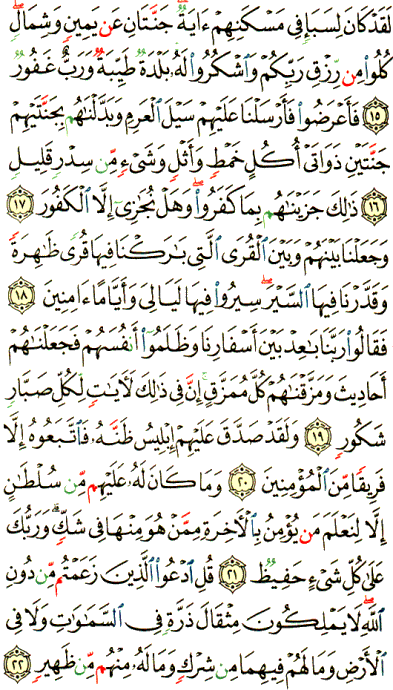 لَقَدۡ كَانَ لِسَبَإٖ فِي مَسۡكَنِهِمۡ ءَايَةٞۖ جَنَّتَانِ عَن يَمِينٖ وَشِمَالٖۖ
كُلُواْ مِن رِّزۡقِ رَبِّكُمۡ وَٱشۡكُرُواْ لَهُۥۚ بَلۡدَةٞ طَيِّبَةٞ وَرَبٌّ غَفُورٞ
١٥ فَأَعۡرَضُواْ فَأَرۡسَلۡنَا عَلَيۡهِمۡ سَيۡلَ ٱلۡعَرِمِ وَبَدَّلۡنَٰهُم بِجَنَّتَيۡهِمۡ
جَنَّتَيۡنِ ذَوَاتَيۡ أُكُلٍ خَمۡطٖ وَأَثۡلٖ وَشَيۡءٖ مِّن سِدۡرٖ قَلِيلٖ
١٦ ذَٰلِكَ جَزَيۡنَٰهُم بِمَا كَفَرُواْۖ وَهَلۡ نُجَٰزِيٓ إِلَّا ٱلۡكَفُورَ ١٧
وَجَعَلۡنَا بَيۡنَهُمۡ وَبَيۡنَ ٱلۡقُرَى ٱلَّتِي بَٰرَكۡنَا فِيهَا قُرٗى ظَٰهِرَةٗ
وَقَدَّرۡنَا فِيهَا ٱلسَّيۡرَۖ سِيرُواْ فِيهَا لَيَالِيَ وَأَيَّامًا ءَامِنِينَ ١٨
فَقَالُواْ رَبَّنَا بَٰعِدۡ بَيۡنَ أَسۡفَارِنَا وَظَلَمُوٓاْ أَنفُسَهُمۡ فَجَعَلۡنَٰهُمۡ
أَحَادِيثَ وَمَزَّقۡنَٰهُمۡ كُلَّ مُمَزَّقٍۚ إِنَّ فِي ذَٰلِكَ لَأٓيَٰتٖ لِّكُلِّ صَبَّارٖ
شَكُورٖ ١٩ وَلَقَدۡ صَدَّقَ عَلَيۡهِمۡ إِبۡلِيسُ ظَنَّهُۥ فَٱتَّبَعُوهُ إِلَّا
فَرِيقٗا مِّنَ ٱلۡمُؤۡمِنِينَ ٢٠ وَمَا كَانَ لَهُۥ عَلَيۡهِم مِّن سُلۡطَٰنٍ
إِلَّا لِنَعۡلَمَ مَن يُؤۡمِنُ بِٱلۡأٓخِرَةِ مِمَّنۡ هُوَ مِنۡهَا فِي شَكّٖۗ وَرَبُّكَ
عَلَىٰ كُلِّ شَيۡءٍ حَفِيظٞ ٢١ قُلِ ٱدۡعُواْ ٱلَّذِينَ زَعَمۡتُم مِّن دُونِ
ٱللَّهِۖ لَا يَمۡلِكُونَ مِثۡقَالَ ذَرَّةٖ فِي ٱلسَّمَٰوَٰتِ وَلَا فِي
ٱلۡأَرۡضِ وَمَا لَهُمۡ فِيهِمَا مِن شِرۡكٖ وَمَا لَهُۥ مِنۡهُم مِّن ظَهِيرٖ ٢٢